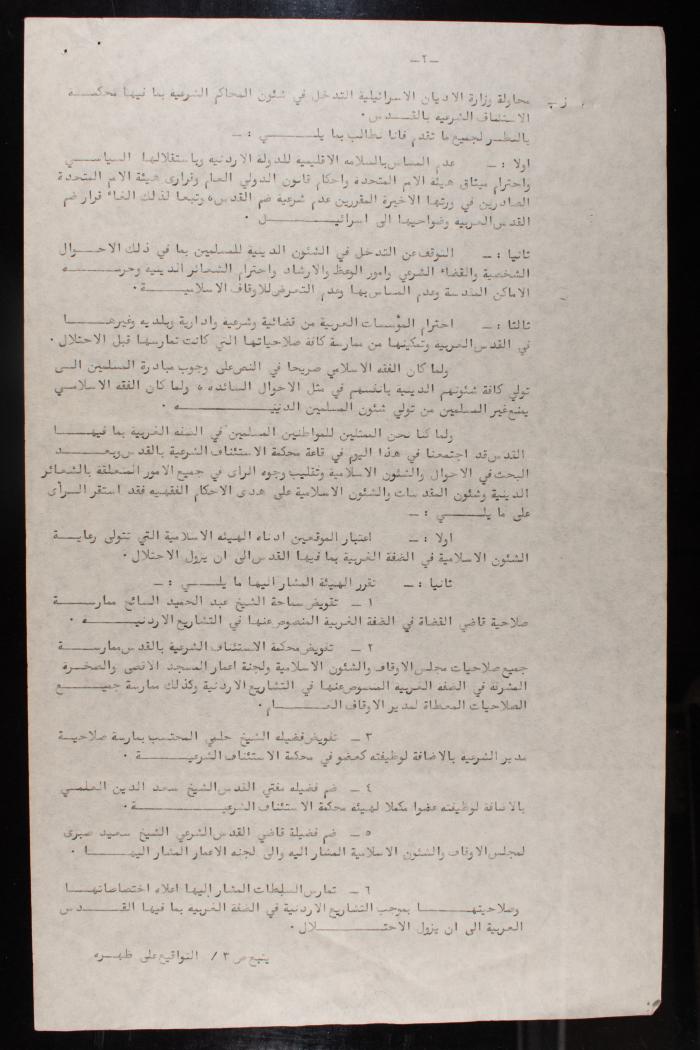 -٢-
ز - محاولة وزارة الاديان الاسرائيلية التدخل في شئون المحاكم الشرعيه بما فيها محكمة
الاستئناف الشرعيه بالقدس .
بالنظر لجميع ما تقدم فاننا نطالب بما يلي : -
اولا : - عدم المساس بالسلامه الاقليمية للدولة الاردنية وباستقلالها السياسي
واحترام ميثاق هيئة الامم المتحدة واحكام قانون الدولي العام وقراري هيئة الامم المتحدة
الصادرين في دورتها الاخيرة المقررين عدم شرعية ضم القدس ، وتبعا لذلك الغاء قرار ضم
القدس العربيه وضواحيها الى اسرائيل .
ثانيا : - التوقف عن التدخل في الشئون الدينية للمسلمين بما في ذلك الاحوال
الشخصية والقضاء الشرعي وامور الوعظ والارشاد واحترام الشعائر الدينيه وحرمه
الاماكن المقدسة وعدم المساس بها وعدم التعرض للاوقاف الاسلامية .
ثالثا : - احترام المؤسسات العربية من قضائية وشرعيه وادارية وبلديه وغيرها
في القدس العربيه وتمكينها من ممارسة كافة صلاحياتها التي كانت تمارسها قبل الاحتلال .
ولما كان الفقه الاسلامي صريحا في النص على وجوب مبادرة المسلمين الى
تولي كافة شئونهم الدينية بانفسهم في مثل الاحوال السائده ، ولما كان الفقه الاسلامي
يمنع غير المسلمين من تولي شئون المسلمين الدينيه .
ولما كنا نحن الممثلين للمواطنين المسلمين في الضفه الغربية بما فيها
القدس قد اجتمعنا في هذا اليوم في قاعة محكمة الاستئناف الشرعية بالقدس وبعد
البحث في الاحوال والشئون الاسلامية وتقليب وجوه الرأى في جميع الامور المتعلقة بالشعائر
الدينية وشئون المقدسات والشئون الاسلامية على هدى الاحكام الفقهيه فقد استقر الرأى
على ما يلي : -
اولا : - اعتبار الموقعين ادناه الهيئه الاسلامية التي تتولى رعاية
الشئون الاسلامية في الضفة الغربية بما فيها القدس الى ان يزول الاحتلال .
ثانيا : - تقرر الهيئة المشار اليها ما يلي : -
١ - تفويض سماحة الشيخ عبد الحميد السائح ممارسة
صلاحية قاضي القضاة في الضفة الغربية المنصوص عنها في التشاريع الاردنية .
٢ - تفويض محكمة الاستئناف الشرعية بالقدس ممارسة
جميع صلاحيات مجلس الاوقاف والشئون الاسلامية ولجنة اعمار المسجد الاقصى والصخرة
المشرفة في الضفه الغربيه المنصوص عنها في التشاريع الاردنية وكذلك ممارسة جميع
الصلاحيات المعطاة لمدير الاوقاف العام .
٣ - تفويض فضيله الشيخ حلمي المحتسب بمارسة صلاحية
مدير الشرعية بالاضافة لوظيفته كعضو في محكمة الاستئناف الشرعية .
٤ - ضم فضيله مفتي القدس الشيخ سعد الدين العلمي
بالاضافة لوظيفته عضوا مكملا لهيئه محكمة الاستئناف الشرعية .
٥ - ضم فضيلة قاضي القدس الشرعي الشيخ سعيد صبرى
لمجلس الاوقاف والشئون الاسلامية المشار اليه والى لجنه الاعمار المشار اليها .
٦ - تمارس السلطات المشار اليها اعلاه اختصاصاتها
وصلاحيتها بموجب التشاريع الاردنية في الضفة الغربيه بما فيها القدس
العربية الى ان يزول الاحتلال .
يتبع ص ٣ / التواقيع على ظهره